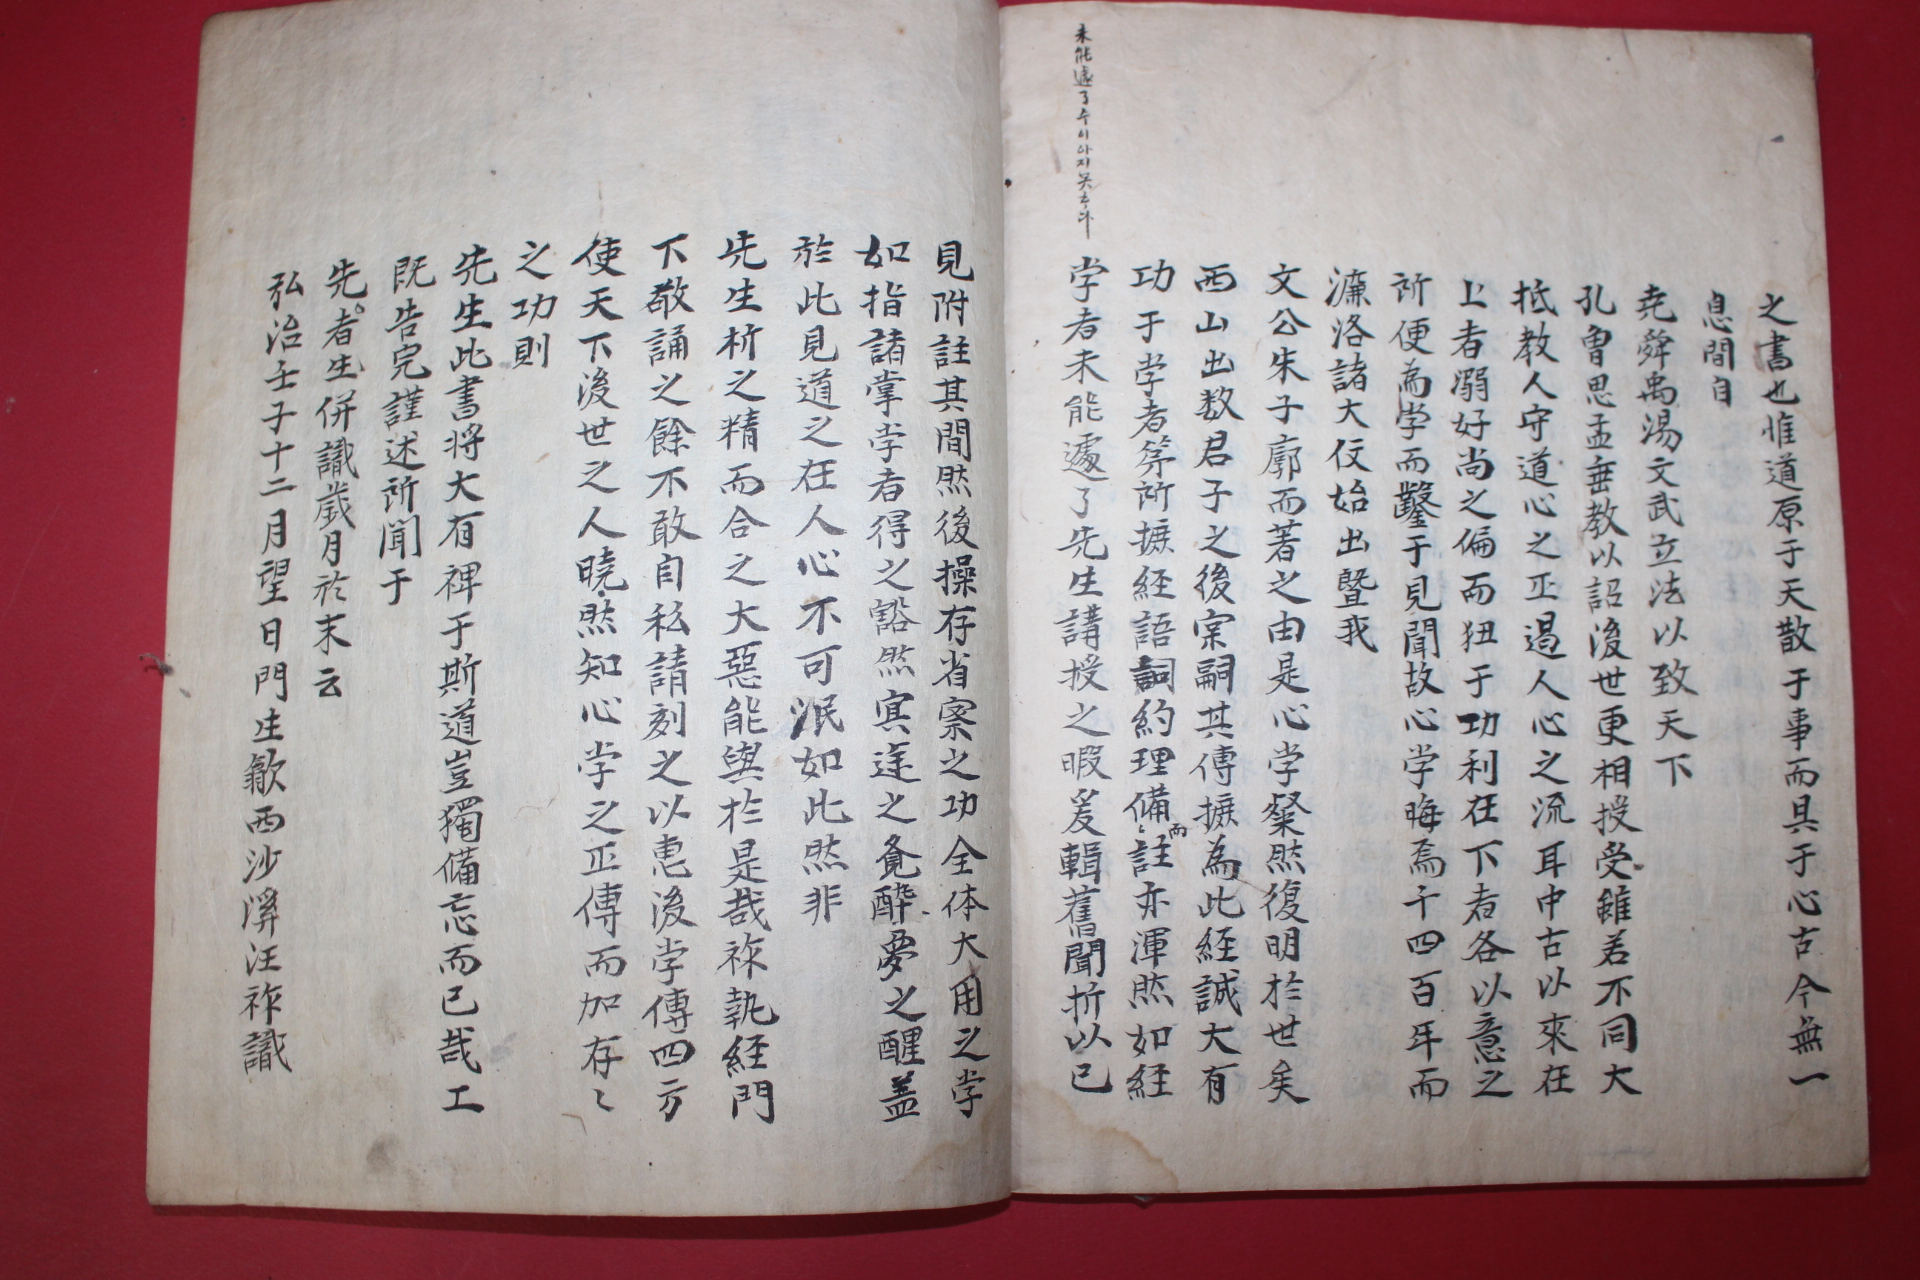 之書也惟道原于天散于事而具于心古今無一
息間自
堯舜禹湯文武立法以致天下
孔曽思孟垂教以詔後世更相授受雖若不同大
抵教人守道心之正遏人心之流耳中古以來在
上者溺好尚之偏而狃于功利在下者各以意之
所便為学而鑿于見聞故心学晦焉千四百年而
濂洛諸大仅始出曁我
文公朱子廓而著之由是心学粲然復明於世矣
西山出数君子之後宲嗣其傳摭為此経誠大有
功于学者第所摭経語詞約理備而註亦渾然如経
学者未能遽了先生講授之暇爰輯舊聞折以己
未能遽了수이아지못하다
見附註其間然後操存省察之功全体大用之学
如指諸掌学者得之豁然㝠途之覺醉夢之醒盖
於此見道之在人心不可泯如此然非
先生析之精而合之大惡能與於是哉祚執経門
下敬誦之餘不敢自私請刻之以惠後学傳四方
使天下後世之人曉然知心学之正傳而加存〻
之功則
先生此書将大有禆于斯道豈獨備忘而已哉工
既告完謹述所聞于
先者生併識歲月於末云
弘治壬子十二月望日門生歙西沙溪汪祚識